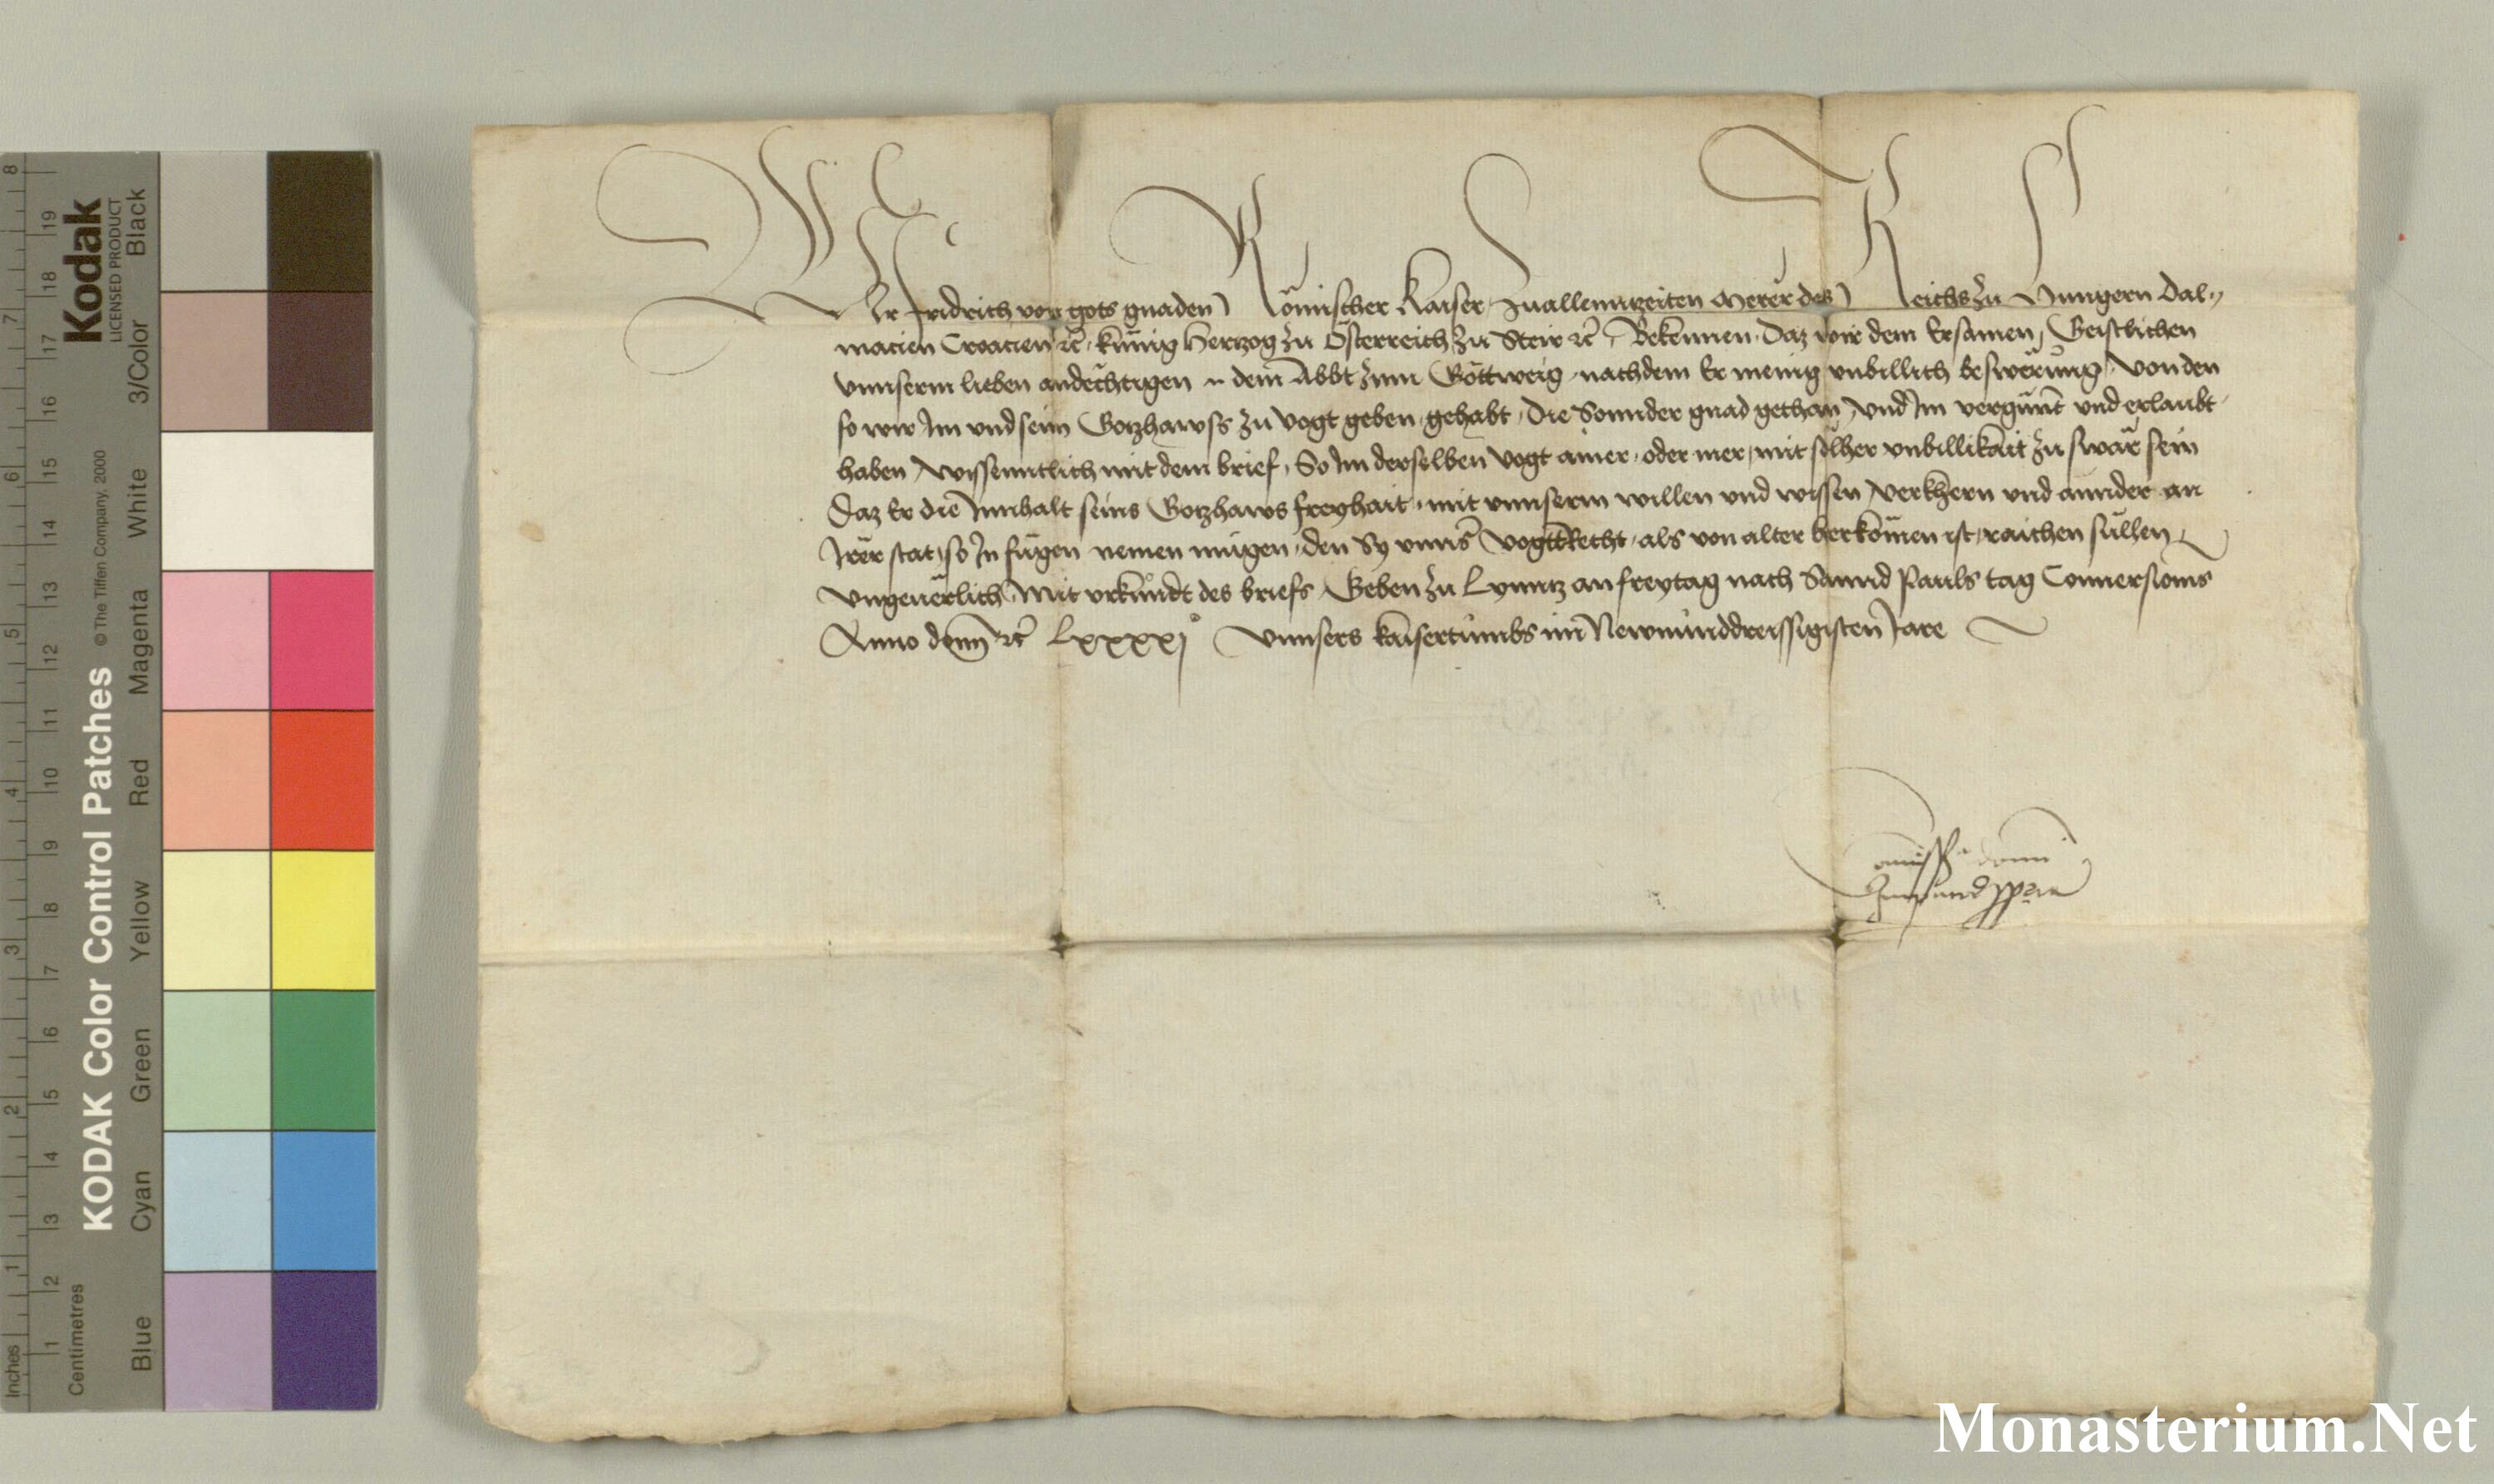 Wir Fridrich von gots gnaden Römischer Kaiser zuallennzeiten Merer des Reichs zu Hungern Dal-
macien Croacien etc kunig Hertzog zu Österreich zu Steir etc Bekennen Daz wir dem Ersamen Geistlichen
unnserm lieben andechtigen n dem Abbt zum Göttweig nachdem Er menig unbillich beswerung von den
so wir Im und seim Gotzhawss zu Vogt geben gehabt Die Sonnder gnad gethan und Im vergunt und erlaubt
haben wissenntlich mit dem brief So Im derselben Vogt ainer oder mer mit solher unbillikait zu swär sein
Daz Er die Innhalt seins Gotzhaws freyhait mit unnserm willen und wissen verkhern und annder an
Irer stat so In fugen nemen mugen den Sy unns Vogttrecht als von alter herkomen ist raichen sullen
ungeuerlich Mit urkundt des briefs Geben zu Lynntz an freytag nach Sannd Pauls tag Conuersionis
Anno domini etc Lxxxxjo Unnsers kaisertumbs im Newnunddreissigisten Jare
Commissio domini
Imperatoris propria
Kodak
LICENSED PRODUCT
KODAK Color Control Patches
© The Tiffen Company, 2000
Black
3/Color
White
Magenta
Red
Yellow
Green
Cyan
Blue
Centimetres
1 2 3 4 5 6 7 8 9 10 11 12 13 14 15 16 17 18 19
Inches
1 2 3 4 5 6 7 8
Monasterium.Net